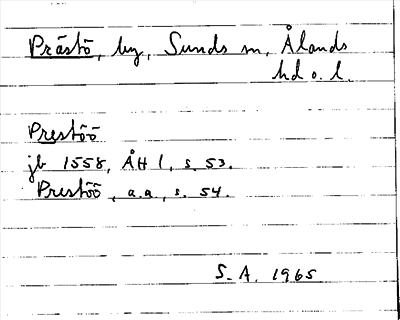 Prästö, by, Sunds sn, Ålands
hd o. l.
Prestöö
jb 1558, ÅH 1, s. 53.
Prestöö, a.a., s. 54.
S.A. 1965